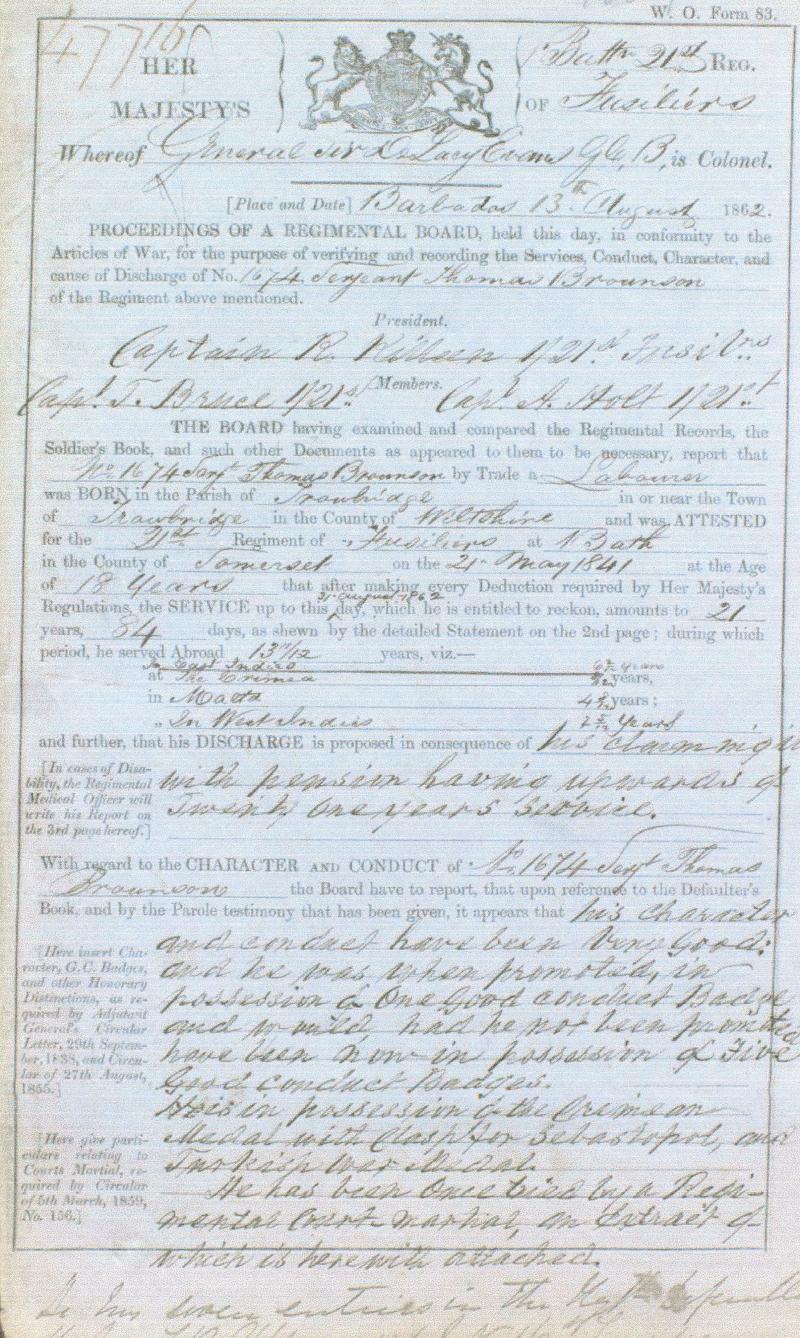 W. O. Form 83.
47716
HER MAJESTY'S
1 Battn 21st REG.
OF Fusiliers
Whereof General Sir De Lacy Evans G.C.B, is Colonel.
[Place and Date] Barbados 13th August 1862.
PROCEEDINGS OF A REGIMENTAL BOARD, held this day, in conformity to the
Articles of War, for the purpose of verifying and recording the Services, Conduct, Character, and
cause of Discharge of No. 1674 Serjeant Thomas Brounson
of the Regiment above mentioned.
President.
Captain R. Killeen 1/21st Fusilrs
Members.
Capt. T. Bruce 1/21st Capt. A. Holt 1/21st
THE BOARD having examined and compared the Regimental Records, the
Soldier's Book, and such other Documents as appeared to them to be necessary, report that
No. 1674 Serjt Thomas Brounson by Trade a Labourer
was BORN in the Parish of Trowbridge in or near the Town
of Trowbridge in the County of Wiltshire and was ATTESTED
for the 21st Regiment of Fusiliers at Bath
in the County of Somerset on the 21 May 1841 at the Age
of 18 Years that after making every Deduction required by Her Majesty's
31 August 1862
Regulations, the SERVICE up to this day, which he is entitled to reckon, amounts to 21
years, 84 days, as shewn by the detailed Statement on the 2nd page; during which
period, he served Abroad 13 /12 years, viz.—
In East Indies 6 years
at The Crimea /12 years,
in Malta 4 years;
„ In West Indies 2 Years
and further, that his DISCHARGE is proposed in consequence of his claiming it
[In cases of Disability, the Regimental Medical Officer will write his Report on the 3rd page hereof.]
with pension having upwards of
Twenty One years service.
With regard to the CHARACTER AND CONDUCT of No. 1674 Serjt Thomas
Brounson the Board have to report, that upon reference to the Defaulter's
Book, and by the Parole testimony that has been given, it appears that his character
[Here insert Character, G.C. Badges, and other Honorary Distinctions, as required by Adjutant General's Circular Letter, 29th September, 1838, and Circular of 27th August, 1855.]
and conduct have been Very Good:
and he was when promoted, in
possession of One Good Conduct Badge
and would, had he not been promoted
have been now in possession of Five
Good conduct Badges.
He is in possession of the Crimean
Medal with Clasp for Sebastopol, and
Turkish War Medal.
[Here give particulars relating to Courts Martial, required by Circular of 5th March, 1859, No. 156.]
He has been Once tried by a Regi-
mental Court-martial, an Extract of
which is herewith attached.
seven entries in the